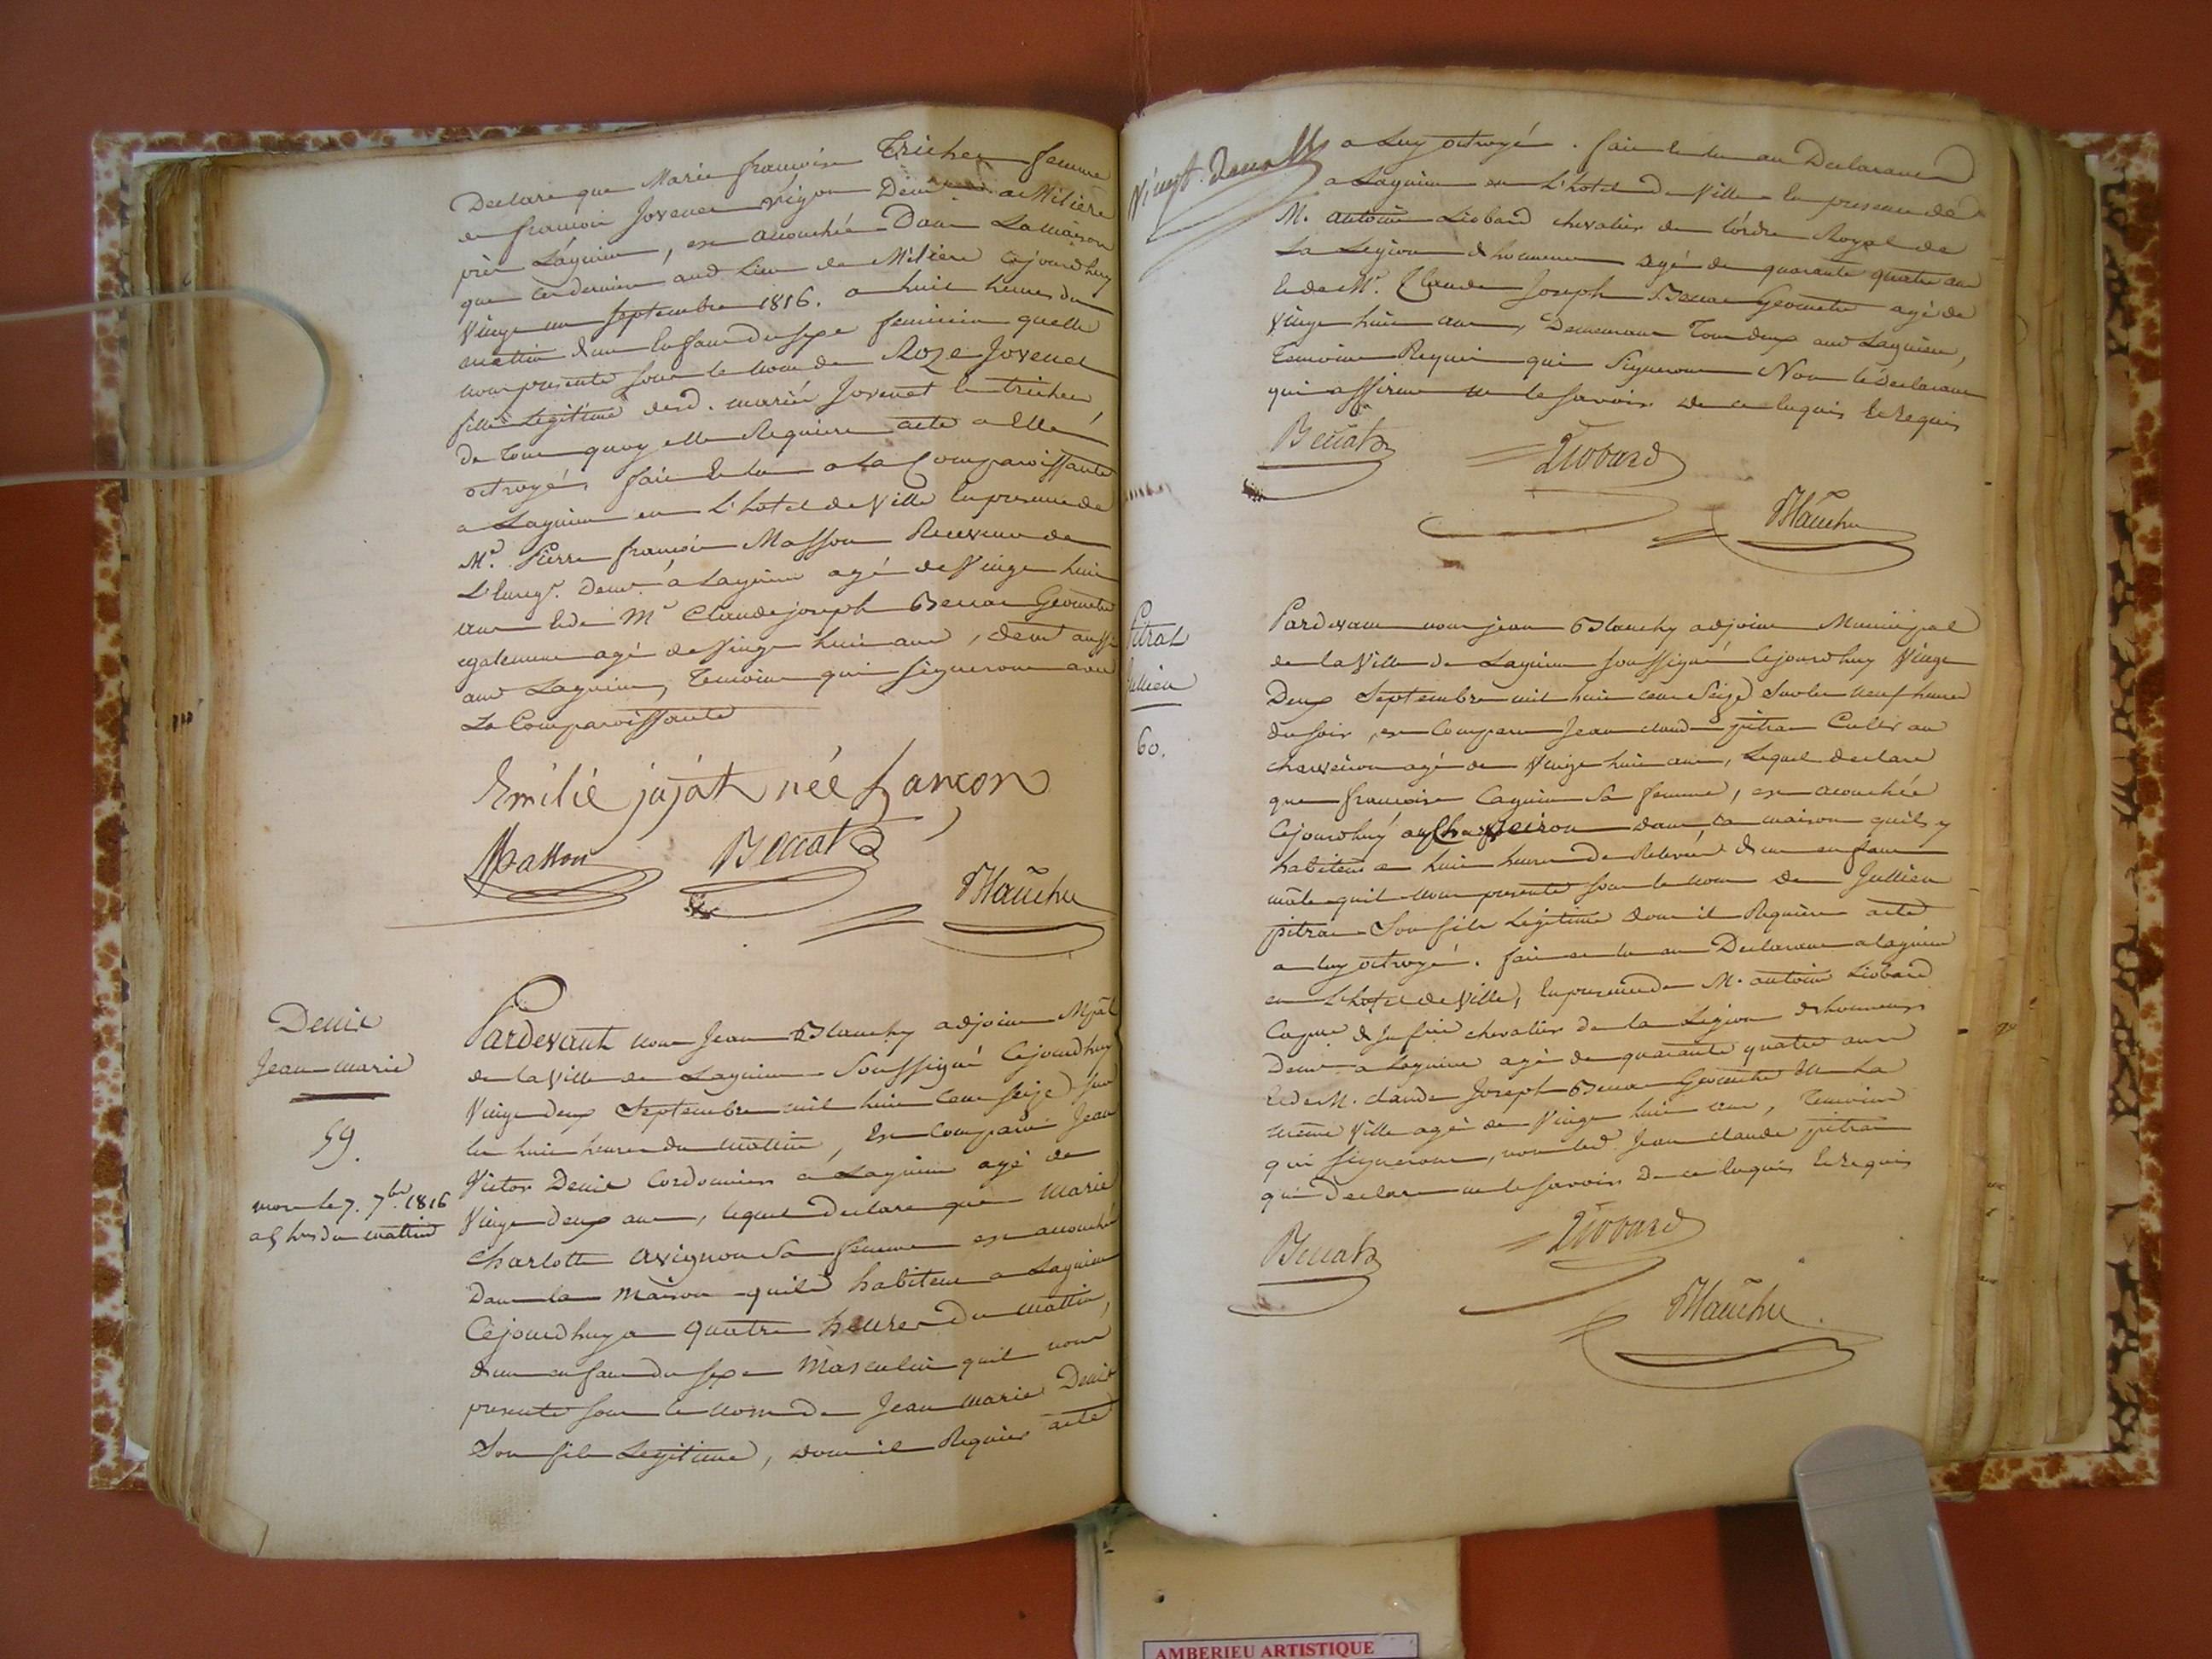 Declare que Marie françoise Tricher femme
de françois Jovenet vigon Demt a Milière
près Lagnieu, est accouchée Dans La maison
que ce dernier aud Lieu de Milière Cejourdhuy
vingt un septembre 1816. a huit heures du
mattin d'un Enfant du sexe feminin quelle
nous presente sous le nom de Roze Jovenet
fille Legitime desd. mariés Jovenet et tricher
de Tout quoy elle Requiere acte a Elle
octroyé, fait et lu a la Comparoissante
a Lagnieu en L'hotel de Ville En presence de
Mr. Pierre françois Masson Receveur de
L'Enregt. Demt. á Lagnieu agé de Vingt huit
ans Et de Mr Claude joseph Beccat Géometre
egalement agé de Vingt huit ans, demt aussi
aud Lagnieu, Temoins qui signeront avec
La Comparoissante
Emilie jajat née Lançon
Masson Beccat
Blanchy
Denis
Jean marie
59.
mort le 7. 7bre. 1816
a 5 hres du mattin
Pardevant nous Jean Blanchy adjoint Mpal
de la Ville de Lagnieu Soussigné Cejourdhuy
Vingt deux Septembre mil huit Cent seize sur
les huit heures du mattin, Est Comparu Jean
Victor Denis Cordonnier a Lagnieu agé de
Vingt deux ans, lequel Declare que Marie
Charlotte avignon Sa femme est accouchée
Dans la Maison quils habitent a Lagnieu
Cejourdhuy a quatre heures Du mattin,
d'un enfant du sexe Masculin quil nous
presente sous le nom de Jean marie Denis
Son fils Legitime, dont il Requier acte
Vingt. deux
a Luy octroyé. fait et lu au Declarant
a Lagnieu en L'hotel de Ville En presence de
M. antoine Liobard chevalier de l'ordre Royal de
La Legion d'honneur agé de quarante quatre ans
Et de Mr. Claude Joseph Beccat Géometre agé de
Vingt huit ans, Demeurant Tous deux aud Lagnieu,
Temoins Requis qui Signeront Non le declarant
qui affirme ne le savoir de ce Enquis Et Requis
Beccat
Liobard
Blanchy
Pitrat
Jullien
60.
Pardevant nous jean Blanchy adjoint Municipal
de la Ville de Lagnieu soussigné Cejourdhuy Vingt
Deux Septembre mil huit cent Seize Sur les neuf heures
du soir, est Comparu Jean claude pitrat Cultr au
charveiron agé de Vingt huit ans, Lequel declare
que francoise Cagnin Sa femme, est acouchée
Cejourdhuy au Charveiron dans la maison quils y
habitent a huit heures De Relevée d'un enfant
mâle quil nous presente sous le nom de Jullien
pitrat Son fils Legitime dont il Requiere acte
a luy octroyé. fait et lu au Declarant a lagnieu
en L'hotel de Ville, En presence de M. antoine Liobard
Capne. d'Infrie chevalier de la Legion d'honneur
Demt. a Lagnieu agé de quarante quatre ans
Et de M. claude Joseph Beccat Géometre de La
même Ville agé de Vingt huit ans, Temoins
qui signeront, non led. Jean claude pitrat
qui Declare ne le savoir De ce Enquis Et Requis
Beccat
Liobard
Blanchy
AMBERIEU ARTISTIQUE